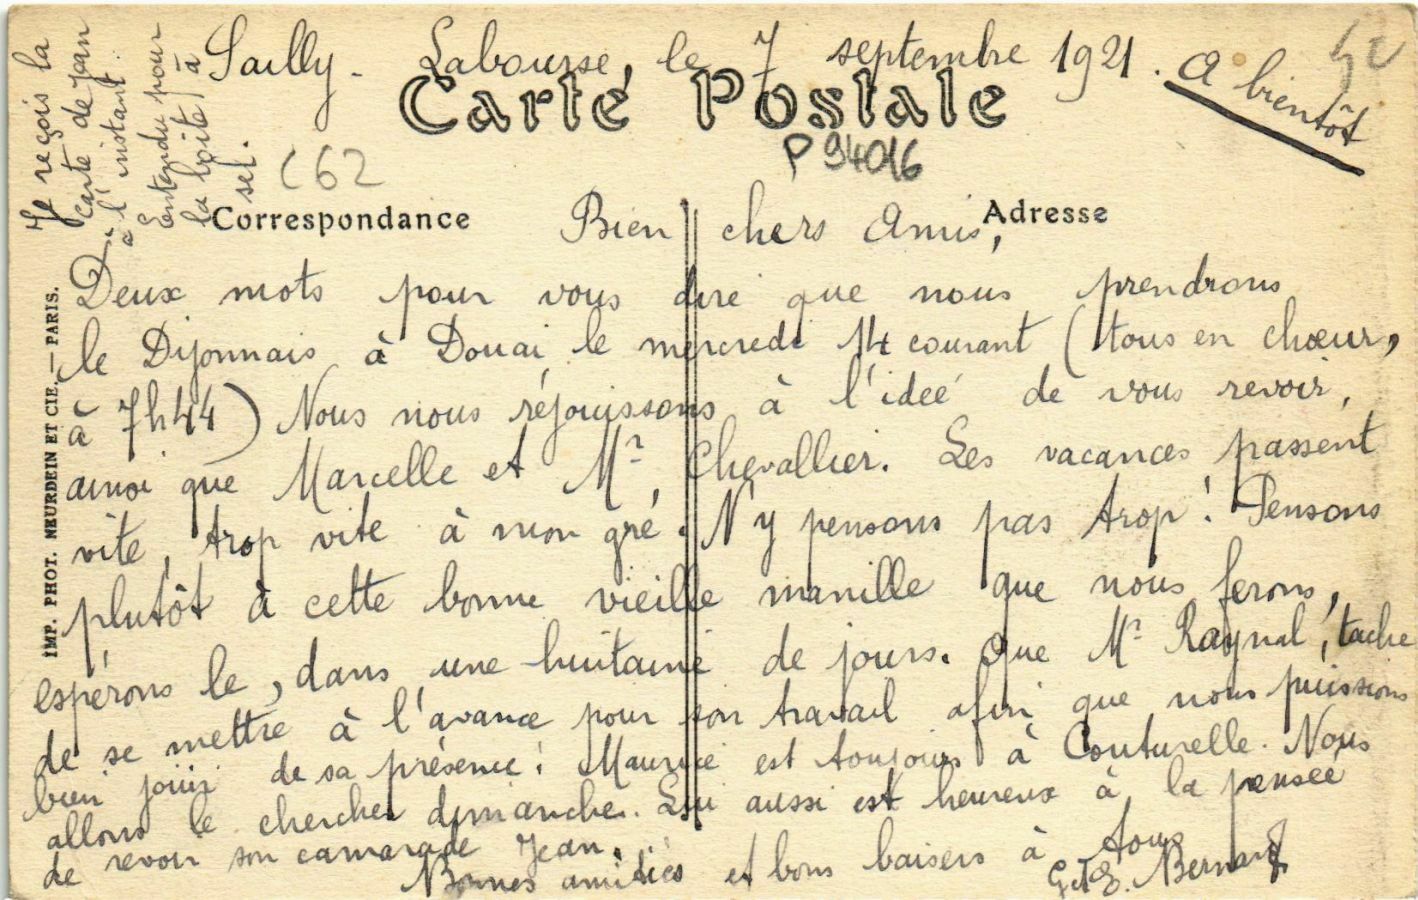 Sailly-Labourse, le 7 septembre 1921.
A bientôt
Carte Postale
P 94016
C62
Je reçois la
carte de Jean
à l'instant.
Entendu pour
la boîte à
sel.
Correspondance
Adresse
Bien chers Amis,
Deux mots pour vous dire que nous prendrons
le Dijonnais à Douai le mercredi 14 courant (tous en chœur,
à 7h44) Nous nous réjouissons à l'idée de vous revoir,
ainsi que Marcelle et Mr Chevallier. Les vacances passent
vite, trop vite à mon gré. N'y pensons pas trop! Pensons
plutôt à cette bonne vieille manille que nous ferons,
espérons le, dans une huitaine de jours. Que Mr Raynal, tache
de se mettre à l'avance pour son travail afin que nous puissions
bien jouir de sa présence! Maurice est toujours à Couturelle. Nous
allons le chercher dimanche. Lui aussi est heureux à la pensée
de revoir son camarade Jean.
Bonnes amitiés et bons baisers à tous
G et E. Bernard
IMP. PHOT. NEURDEIN ET CIE. — PARIS.